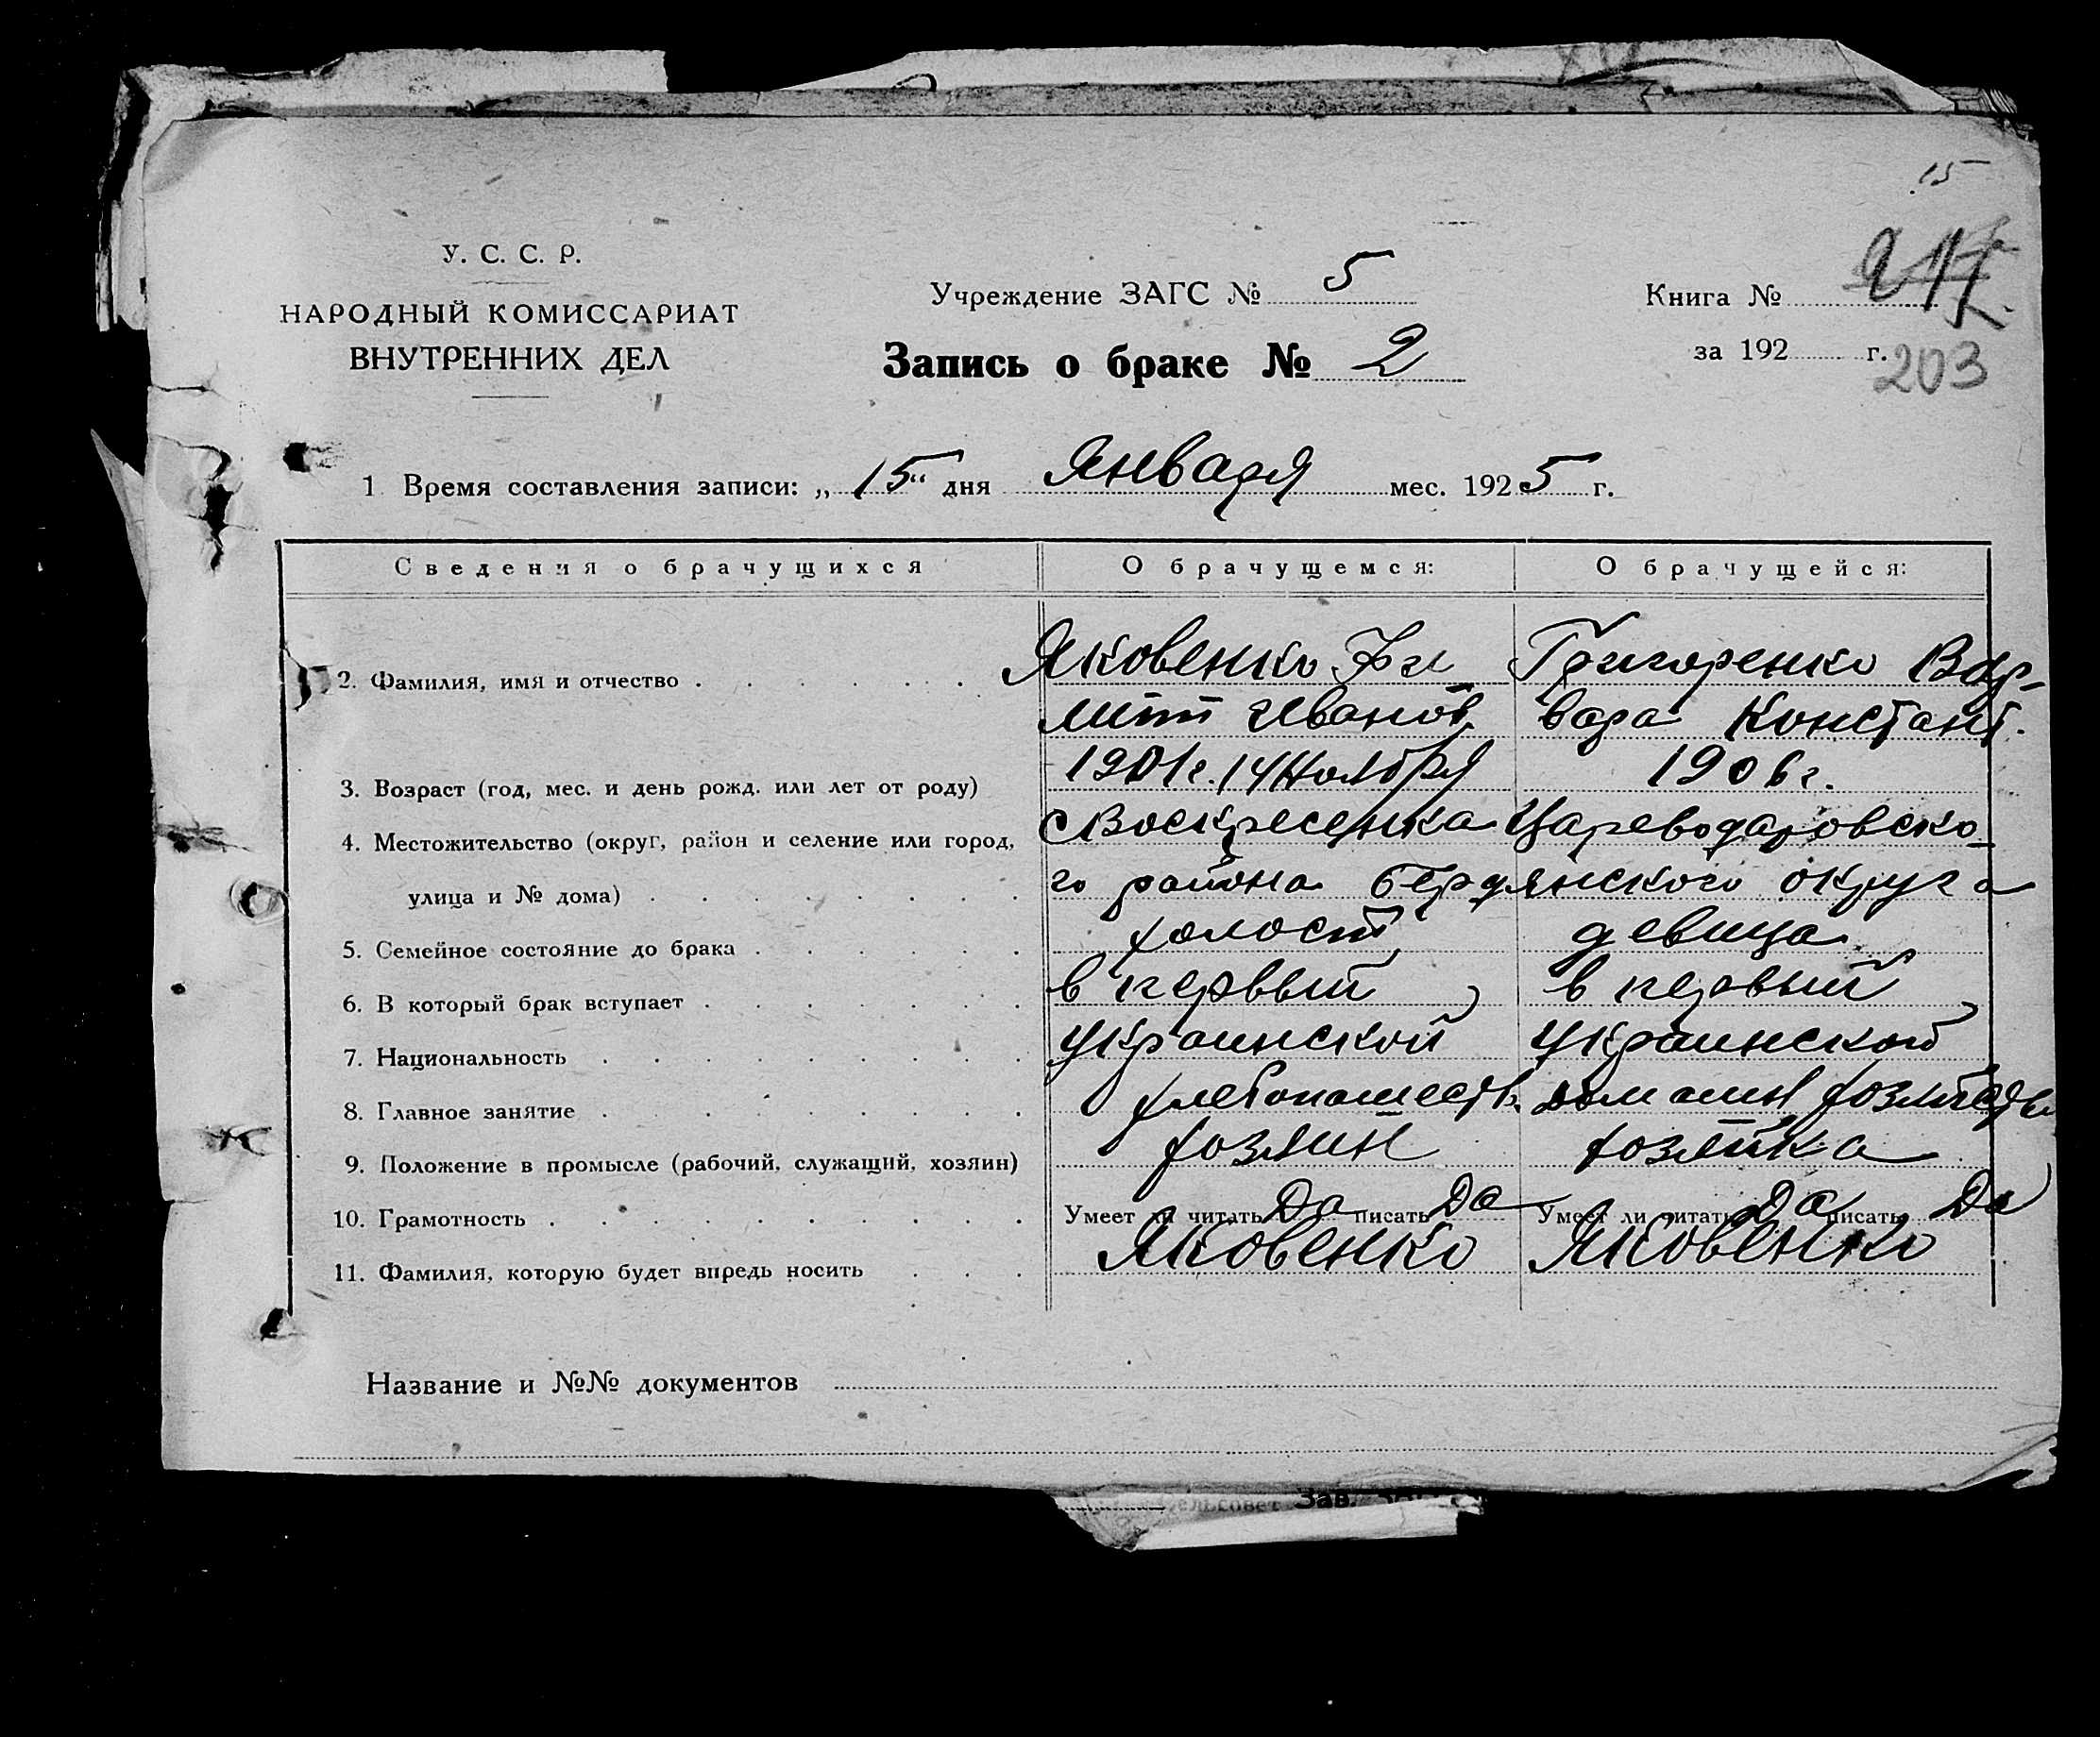 15
У. С. С. Р.
НАРОДНЫЙ КОМИССАРИАТ
ВНУТРЕННИХ ДЕЛ
Учреждение ЗАГС № 5
Запись о браке № 2
Книга №
за 192 г.
203
1 Время составления записи: „ 15 " дня Января мес. 1925 г.
Сведения о брачущихся О брачущемся: О брачущейся:
2. Фамилия, имя и отчество Яковенко Фи Григоренко Вар-
липп Иванов. вара Констант.
3. Возраст (год, мес. и день рожд. или лет от роду) 1901г. 14 Ноября 1906г.
4. Местожительство (округ, район и селение или город, с Воскресенка Цареводаровско-
улица и № дома) го района бердянского округа
5. Семейное состояние до брака холост девица
6. В который брак вступает в первый в первый
7. Национальность украинской украинской
8. Главное занятие хлебопашеств.
9. Положение в промысле (рабочий, служащий, хозяин) хозяин хозяйка
10. Грамотность Умеет ли читать Да писать Да Умеет ли читать Да писать Да
11. Фамилия, которую будет впредь носить Яковенко Яковенко
Название и №№ документов
сельсовет Зав.